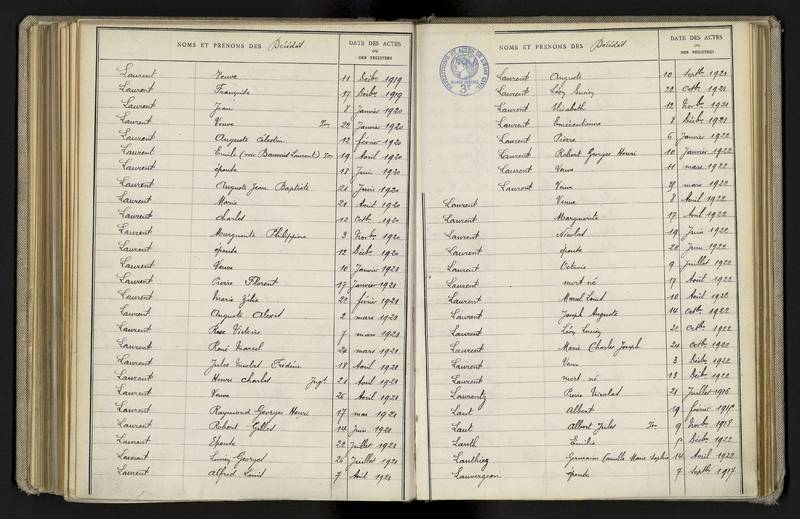 NOMS ET PRÉNOMS DES Décédés
DATE DES ACTES
OU
DES REGISTRES
Laurent Veuve 11 Décbre 1919
Laurent Françoise 17 Décbre 1919
Laurent Jean 8 Janvier 1920
Laurent Veuve 22 Janvier 1920
Laurent Auguste Célestin 12 février 1920
Laurent Emile (voir Laurent) 19 Avril 1920
Laurent épouse 18 Juin 1920
Laurent Auguste Jean Baptiste 21 Juin 1920
Laurent Marie 21 Août 1920
Laurent Charles 12 Octb 1920
Laurent Marguerite Philippine 3 Novb 1920
Laurent épouse 12 Décb 1920
Laurent Veuve 10 Janvier 1921
Laurent Pierre Florent 17 Janvier 1921
Laurent Marie Zélie 22 février 1921
Laurent Auguste Alexis 2 mars 1921
Laurent Rose Victoire 7 mars 1921
Laurent René Marcel 24 mars 1921
Laurent Jules Nicolas Frédéric 18 Avril 1921
Laurent Henri Charles 21 Avril 1921
Laurent Veuve 26 Avril 1921
Laurent Raymond Georges Henri 17 mai 1921
Laurent Robert Gilles 14 Juin 1921
Laurent Epouse 22 Juillet 1921
Laurent Lucien Georges 26 Juillet 1921
Laurent Alfred Louis 7 1921
NOMS ET PRÉNOMS DES Décédés
DATE DES ACTES
OU
DES REGISTRES
Laurent Auguste 10 Septbre 1921
Laurent Léon Lucien 22 Octbre 1921
Laurent Elisabeth 12 Novbre 1921
Laurent Emérentienne 8 Décbre 1921
Laurent Pierre 6 Janvier 1922
Laurent Robert Georges Henri 10 Janvier 1922
Laurent Veuve 11 mars 1922
Laurent Veuve mars 1922
Laurent Veuve 8 Avril 1922
Laurent Marguerite 17 Avril 1922
Laurent Nicolas 19 Juin 1922
Laurent épouse 20 Juin 1922
Laurent Octavie 9 Juillet 1922
Laurent mort né 17 Août 1922
Laurent Marcel Louis 10 Août 1922
Laurent Joseph Auguste 14 Octbre 1922
Laurent Léon Lucien 22 Octbre 1922
Laurent Marie Charles Joseph 24 Octbre
Laurent Veuve 3 Décbre 1922
Laurent mort né 13 Décbre 1922
Laurentz Pierre Nicolas 21 Juillet 1916
Laut Albert 19 février
Laut Albert Jules 9 Novbre 1918
Lauth Emilie Décbre 1922
Lauthiez Germaine Camille Marie Sophie 14 Avril 1922
Lauvergeon épouse 7 Septbre 1917